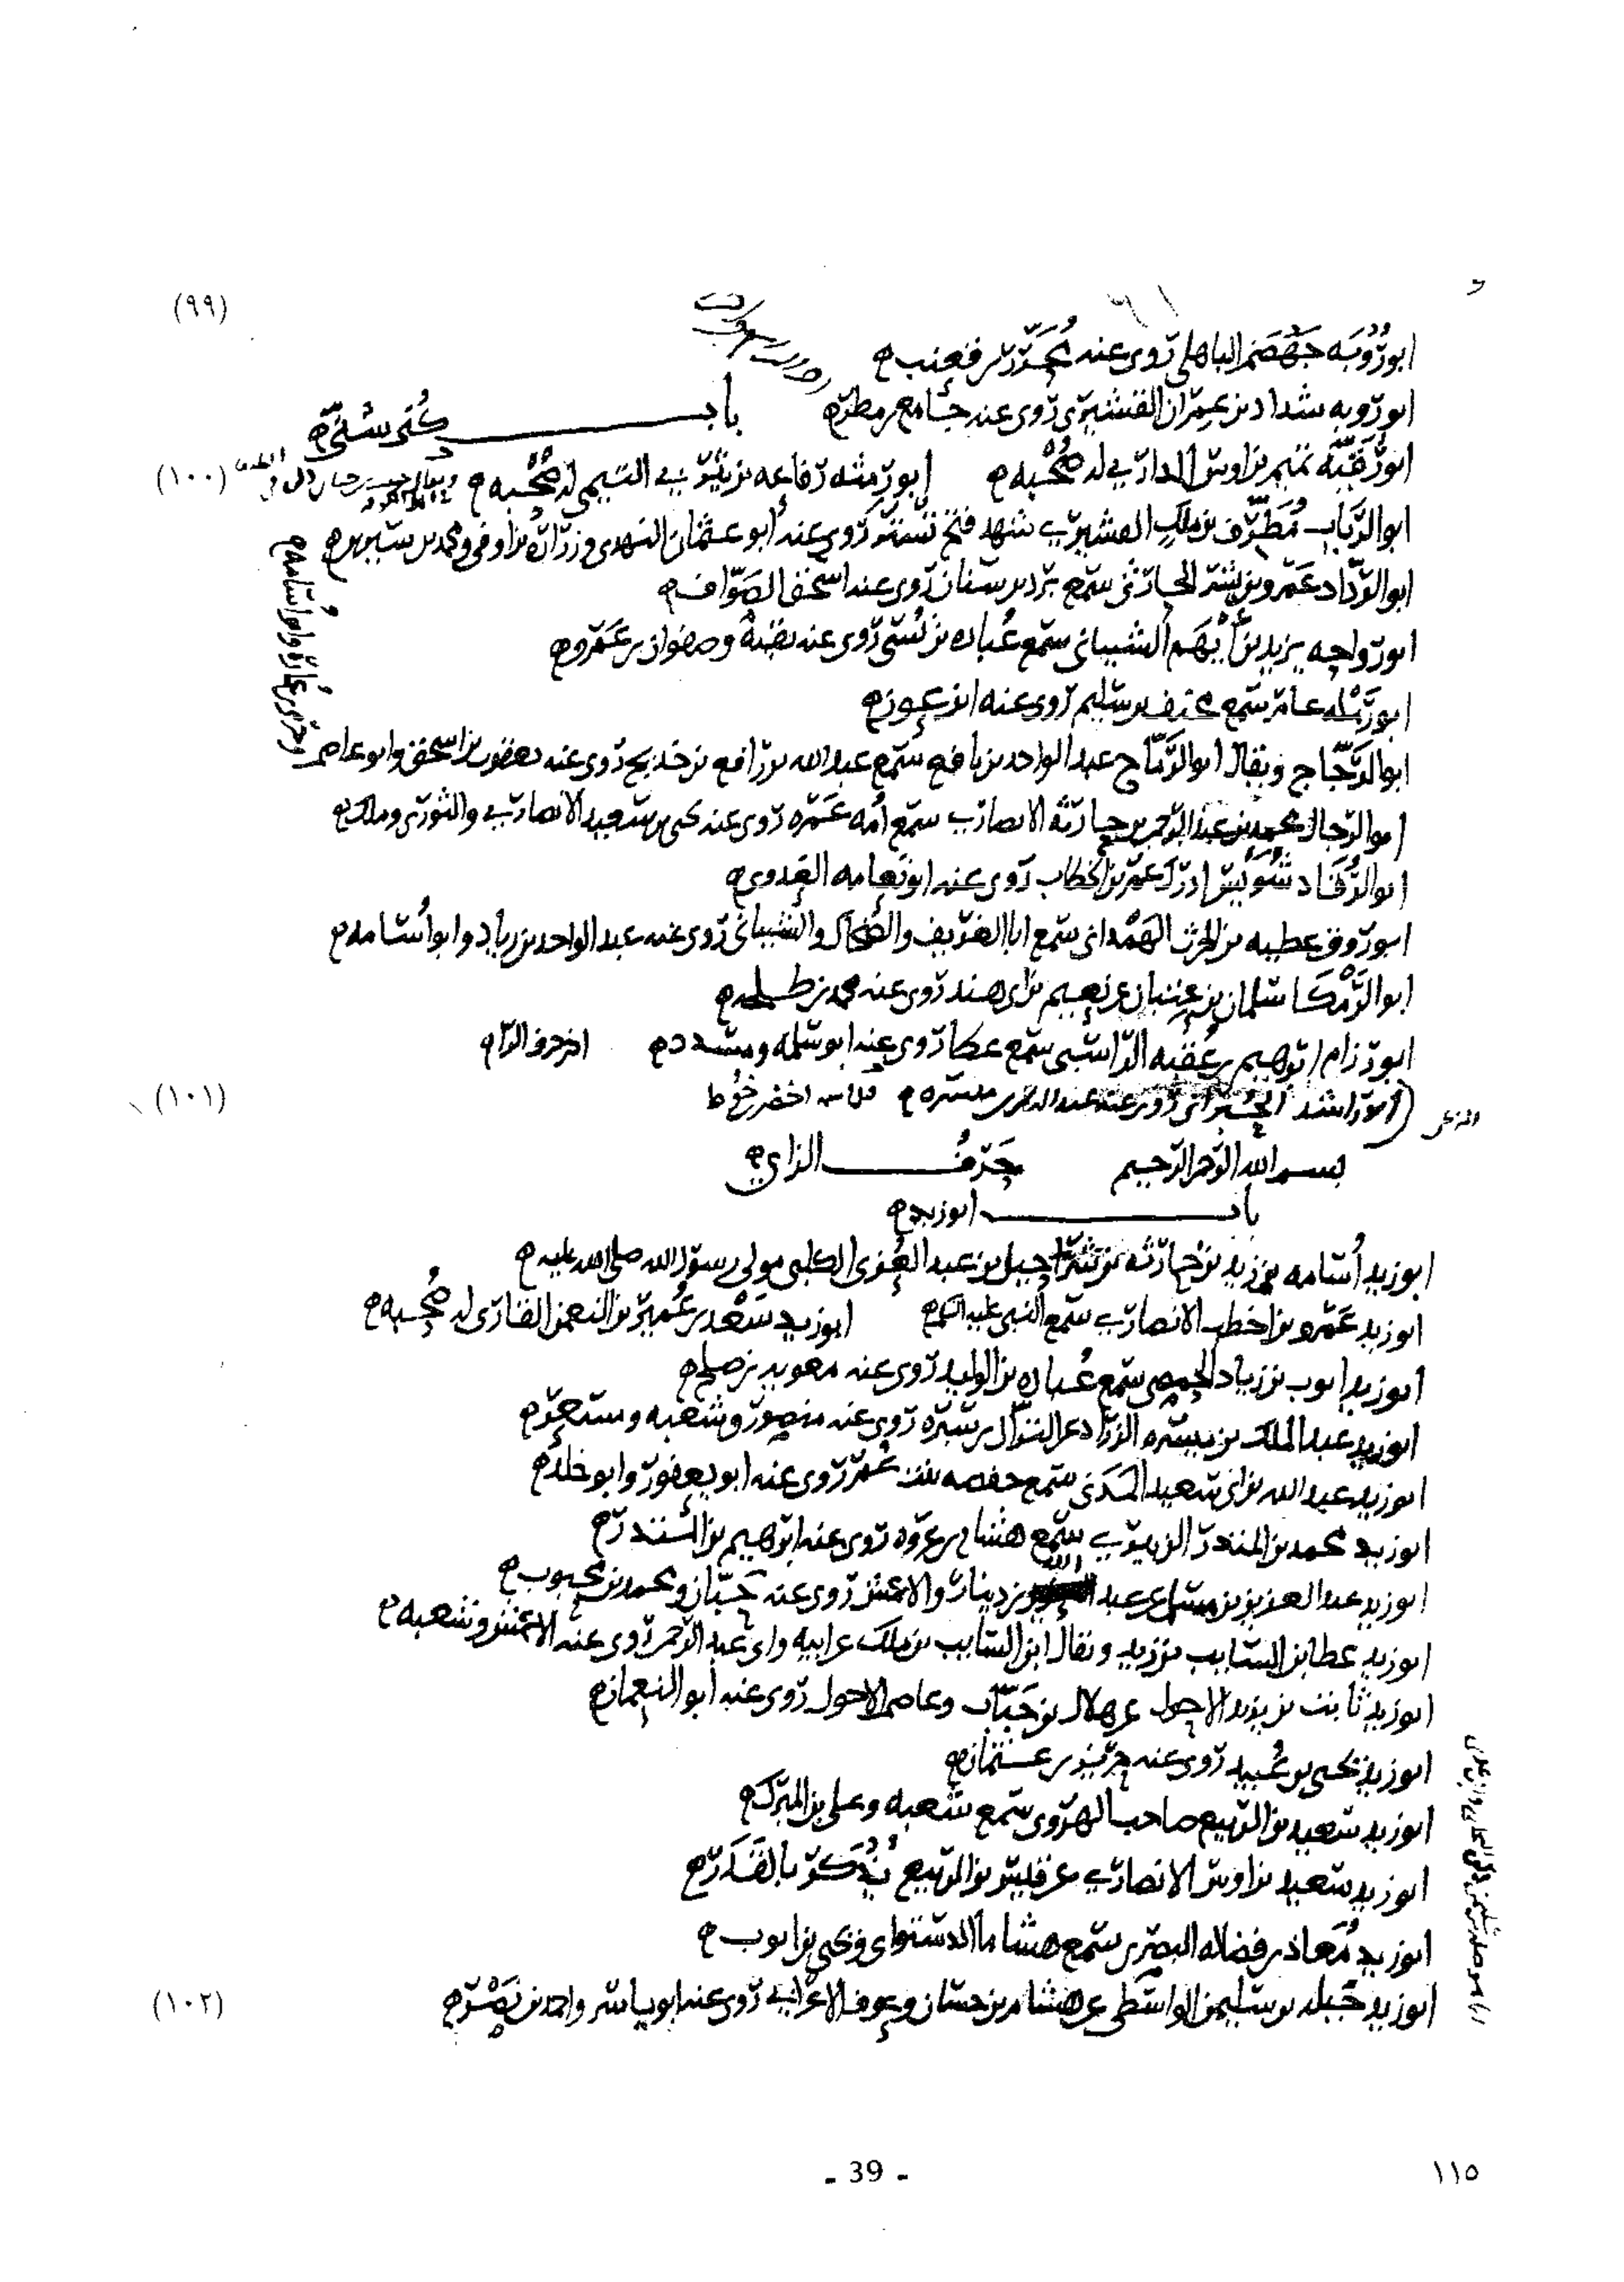 (٩٩)
ابو رؤبه جهضم الباهلي روى عنه محرز بن قعنب
ابو روبه شداد بن عمران القشيري روى عنه جامع بن مطر باب كنى شتى
(١٠٠)
ابو رقية تميم بن اوس الداري له صحبه ابو رمثه رفاعه بن يثربي التيمي له صحبه
ابو الرباب مطرف بن ملك القشيري شهد فتح تستر روى عنه ابو عثمان النهدي وزرارة بن اوفى ومحمد بن سيرين
ابو الرداد عمرو بن بشر الحارثي سمع برد بن سنان روى عنه اسحق الصواف
ابو رواحه يزيد بن ايهم الشيباني سمع عباده بن نسي روى عنه بقية وصفوان بن عمرو
ابو رملة عامر سمع مخنف بن سليم روى عنه ابن عون
ابو الرجاج ويقال ابو الرماح عبد الواحد بن نافع سمع عبد الله بن رافع بن خديج روى عنه يعقوب بن اسحق وابو عاصم
وحرمي بن عمارة وابو اسامة
ابو الرجال محمد بن عبد الرحمن بن حارثة الانصاري سمع امه عمره روى عنه يحيى بن سعيد الانصاري والثوري وملك
ابو الرقاد شويس ادرك عمر بن الخطاب روى عنه ابو نعامه العدوي
ابو روق عطيه بن الحرث الهمداني سمع ابا الغريف والضحاك والشيباني روى عنه عبد الواحد بن زياد وابو اسامه
ابو الرمكا سلمان بن عن نعيم بن ابي هند روى عنه محمد بن طلحه
ابو رزام ابرهيم بن عقبه الراسبي سمع عطا روى عنه ابو سلمه ومسدد اخر حرف الرا
(١٠١)
ابو راشد الحبراني روى عنه عبد الرحمن بن ميسره
بسم الله الرحمن الرحيم حرف الزاي
باب ابو زيد
ابو زيد اسامه بن زيد بن حارثه بن شراحيل بن عبد العزى الكلبي مولى رسول الله صلى الله عليه
ابو زيد عمرو بن اخطب الانصاري سمع النبي عليه السلم ابو زيد سعد بن عمير بن النعمن القاري له صحبه
ابو زيد ايوب بن زياد الحمصي سمع عباده بن الوليد روى عنه معويه بن صلح
ابو زيد عبد الملك بن ميسره الزراد عن النزال بن سبره روى عنه منصور وشعبه ومسعر
ابو زيد عبد الله بن ابي سعيد المدني سمع حفصه بنت عمر روى عنه ابو يعفور وابو خلد
ابو زيد محمد بن المنذر الزبيري سمع هشام بن عروه روى عنه ابرهيم بن المنذر
ابو زيد عبد العزيز بن مسلم عن عبد الله بن دينار والاعمش روى عنه حبان ومحمد بن محبوب
ابو زيد عطا بن السايب بن زيد ويقال ابن السايب بن ملك عن ابيه وابي عبد الرحمن روى عنه الاعمش وشعبه
ابو زيد ثابت بن يزيد الاحول عن هلال بن خباب وعاصم الاحول روى عنه ابو النعمان
ابو زيد يحيى بن عبيد روى عنه حريز بن عثمان
ابو زيد سعيد بن الربيع صاحب الهروي سمع شعبه وعلي بن المبرك
ابو زيد سعيد بن اوس الانصاري عن قيس بن الربيع يذكر بالقدر
ابو زيد معاذ بن فضاله البصري سمع هشاما الدستواي ويحيى بن ايوب
ابو زيد جبله بن سليمن الواسطي عن هشام بن حسان وعوف الاعرابي روى عنه ابو ياسر واحمد بن نصر
(١٠٢)
- 39 -
١١٥